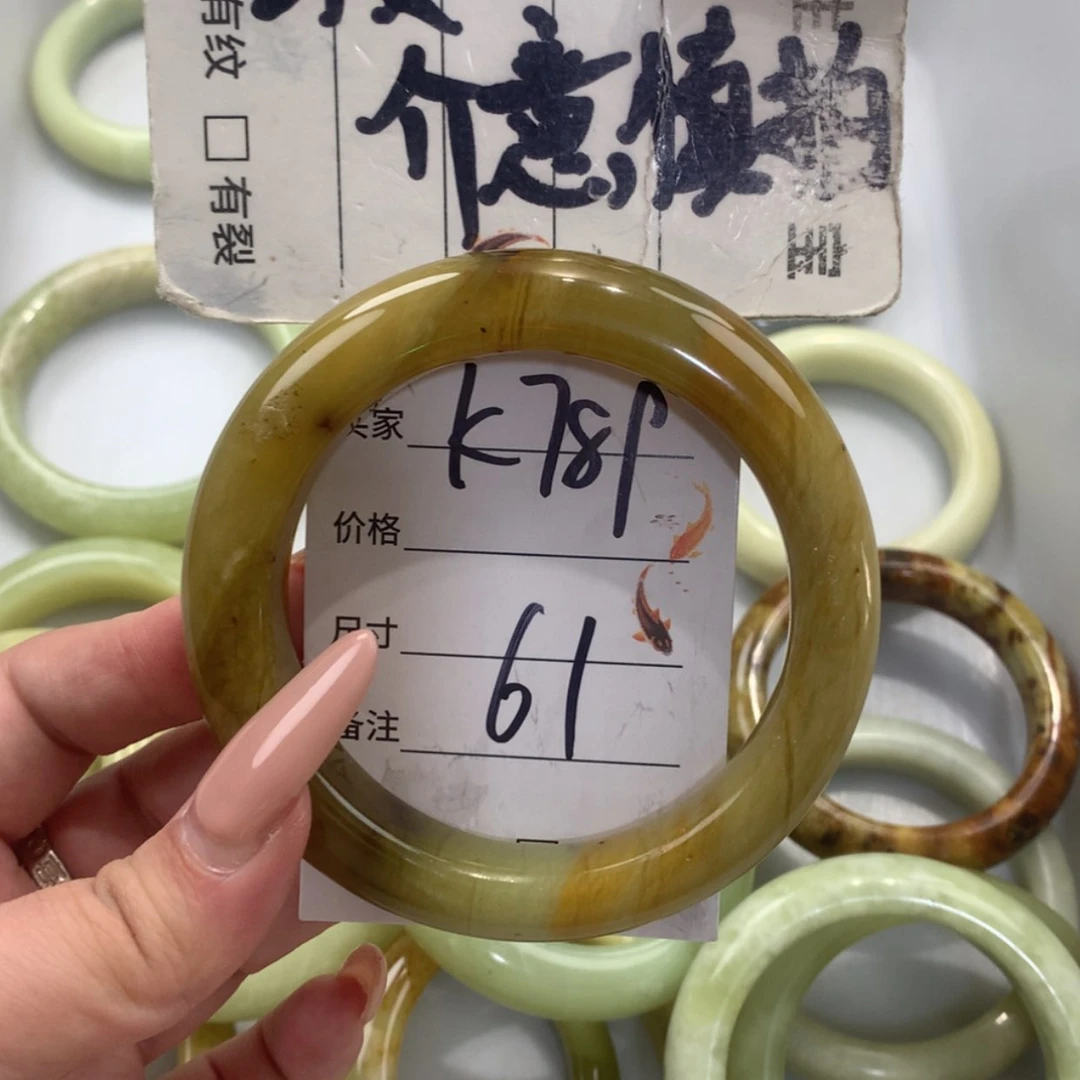 有纹 □有裂
介意慎拍
卖家 K781
价格
尺寸 61
备注